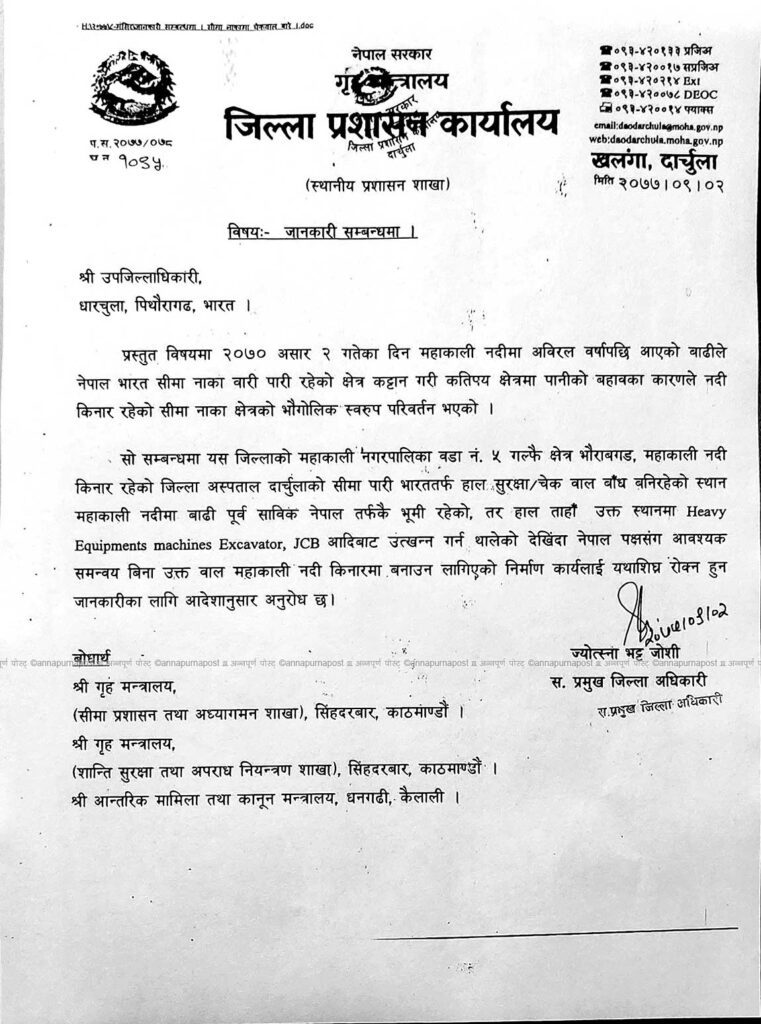 नेपाल सरकार
गृह मन्त्रालय
जिल्ला प्रशासन कार्यालय
(स्थानीय प्रशासन शाखा)
प.स.२०७७/०७८
च न १०३५
☎०९३-४२०१३३ प्रजिअ
☎०९३-४२००१७ सप्रजिअ
☎०९३-४२०२१४ Ext
☎०९३-४२००७८ DEOC
०९३-४२००१४ फ्याक्स
email:daodarchula@moha.gov.np
web:daodarchula.moha.gov.np
खलंगा, दार्चुला
मिति २०७७।०९।०२
विषयः- जानकारी सम्बन्धमा ।
श्री उपजिल्लाधिकारी,
धारचुला, पिथौरागढ, भारत ।
प्रस्तुत विषयमा २०७० असार २ गतेका दिन महाकाली नदीमा अविरल वर्षापछि आएको बाढीले
नेपाल भारत सीमा नाका वारी पारी रहेको क्षेत्र कट्टान गरी कतिपय क्षेत्रमा पानीको बहावका कारणले नदी
किनार रहेको सीमा नाका क्षेत्रको भौगोलिक स्वरुप परिवर्तन भएको ।
सो सम्बन्धमा यस जिल्लाको महाकाली नगरपालिका वडा नं. ५ गल्फै क्षेत्र भौराबगड, महाकाली नदी
किनार रहेको जिल्ला अस्पताल दार्चुलाको सीमा पारी भारततर्फ हाल सुरक्षा/चेक वाल बाँध बनिरहेको स्थान
महाकाली नदीमा बाढी पूर्व साबिक नेपाल तर्फकै भूमी रहेको, तर हाल ताहाँ उक्त स्थानमा Heavy
Equipments machines Excavator, JCB आदिबाट उत्खन्न गर्न थालेको देखिंदा नेपाल पक्षसंग आवश्यक
समन्वय बिना उक्त वाल महाकाली नदी किनारमा बनाउन लागिएको निर्माण कार्यलाई यथाशिघ्र रोक्न हुन
जानकारीका लागि आदेशानुसार अनुरोध छ।
२०७७/०९/०२
ज्योत्स्ना भट्ट जोशी
स. प्रमुख जिल्ला अधिकारी
स.प्रमुख जिल्ला अधिकारी
बोधार्थ
©annapurnapost ॥ अन्नपूर्ण पोस्ट् ©annapurnapost ॥ अन्नपूर्ण पोस्ट् ©annapurnapost ॥ अन्नपूर्ण पोस्ट्
श्री गृह मन्त्रालय,
(सीमा प्रशासन तथा अध्यागमन शाखा), सिंहदरबार, काठमाण्डौं ।
श्री गृह मन्त्रालय,
(शान्ति सुरक्षा तथा अपराध नियन्त्रण शाखा), सिंहदरबार, काठमाण्डौं ।
श्री आन्तरिक मामिला तथा कानून मन्त्रालय, धनगढी, कैलाली ।